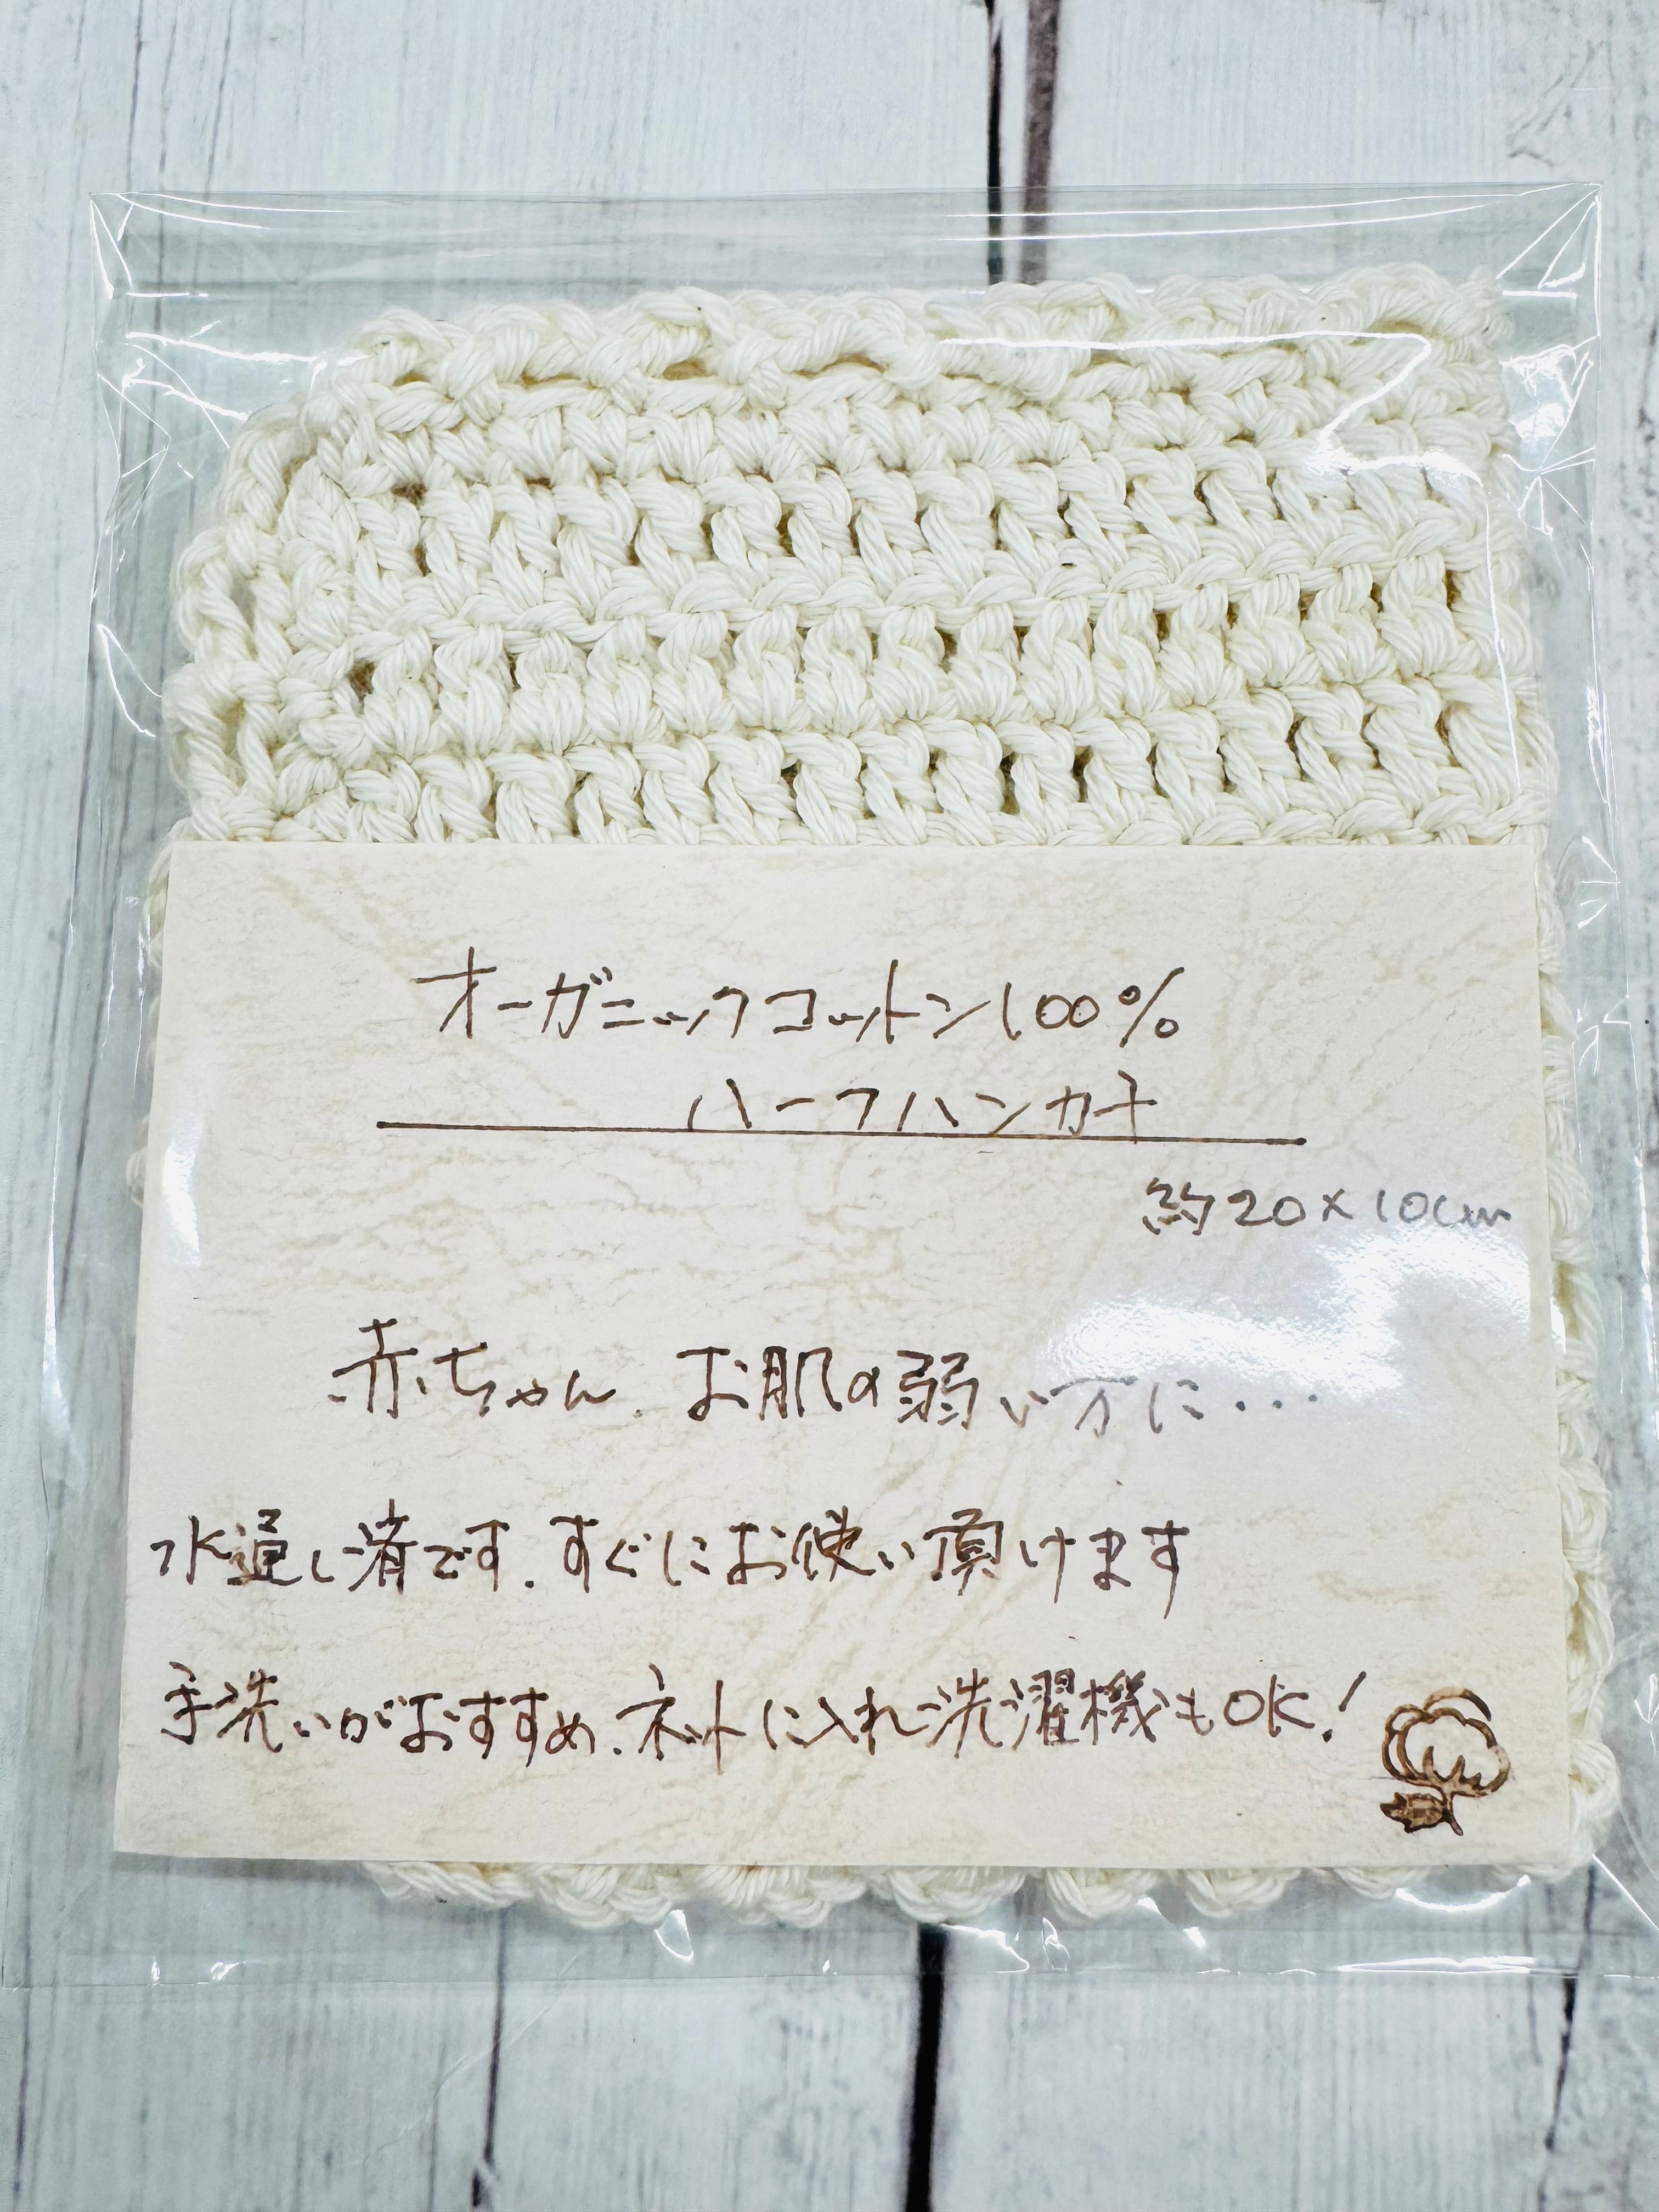 オーガニックコットン100%
ハーフハンカチ
約20×10cm
赤ちゃん、お肌の弱い方に...
水通し済です。すぐにお使い頂けます
手洗いがおすすめ、ネットに入れ洗濯機もOK!